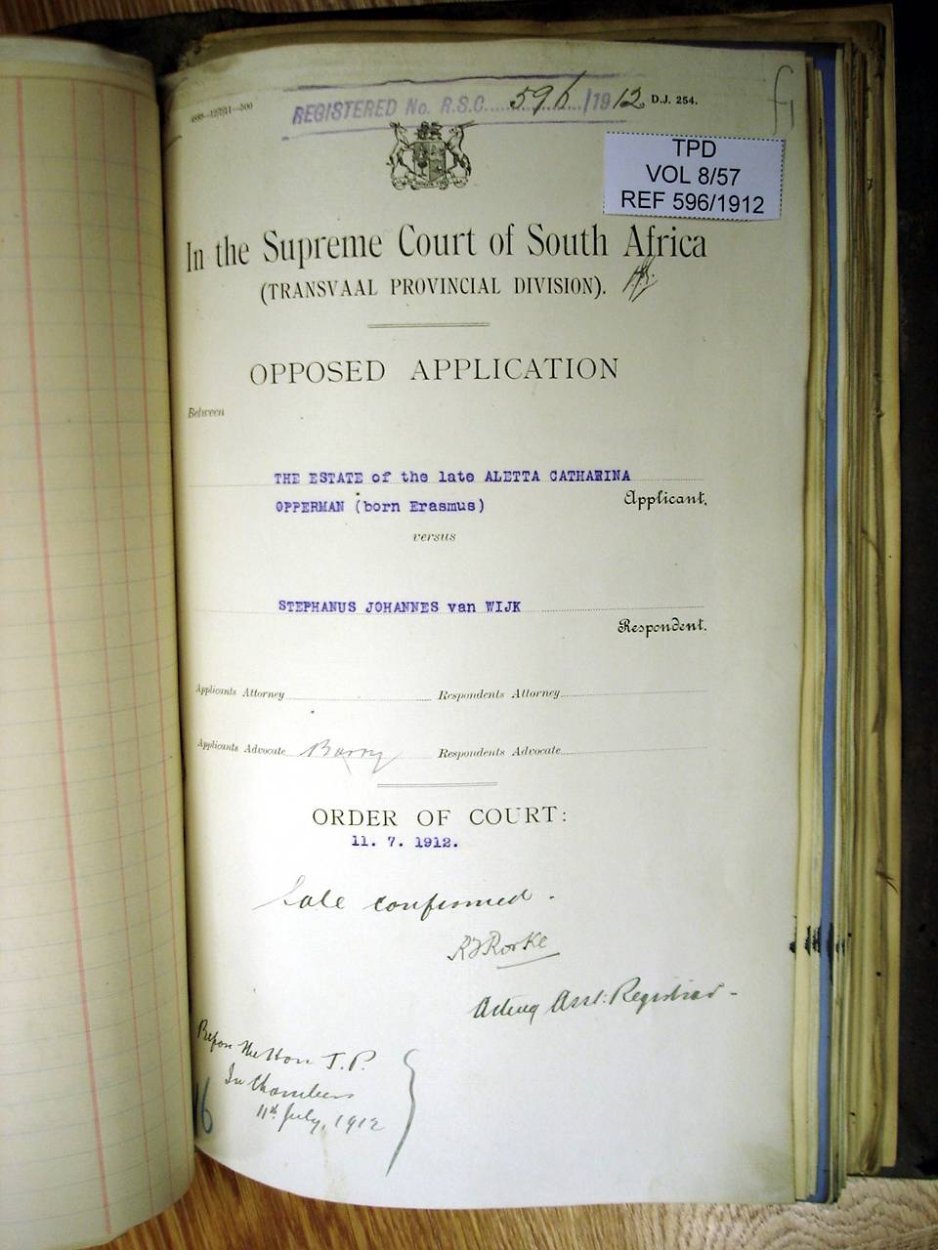 REGISTERED No. R.S.C. 596/1912 D.J. 254.
TPD
VOL 8/57
REF 596/1912
In the Supreme Court of South Africa
(TRANSVAAL PROVINCIAL DIVISION).
OPPOSED APPLICATION
Between
THE ESTATE of the late ALETTA CATHARINA
OPPERMAN (born Erasmus)
Applicant.
versus
STEPHANUS JOHANNES van WIJK
Respondent.
Applicants Attorney Respondents Attorney
Applicants Advocate Barry Respondents Advocate
ORDER OF COURT:
11. 7. 1912.
Sale confirmed.
Rorke
Acting Asst: Registrar -
Before the Hon J.P.
In Chambers
11th July, 1912